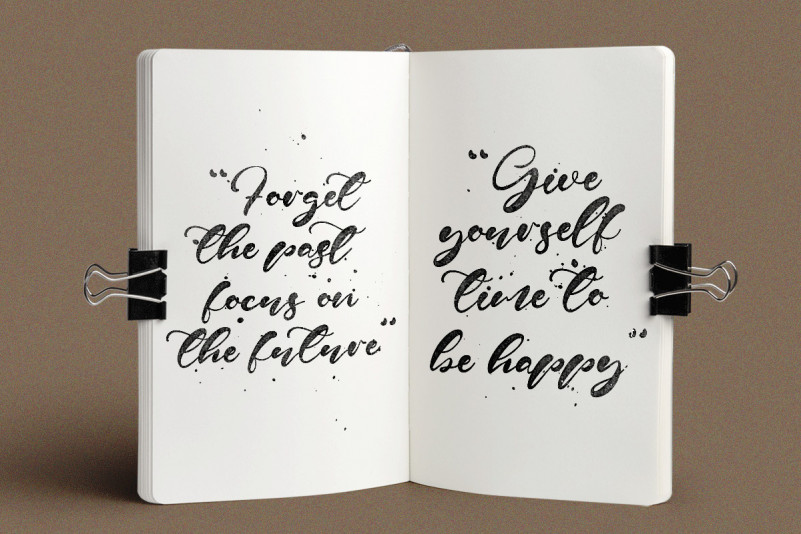 “Forget
the past
focus on
the future”
“Give
yourself
time to
be happy”